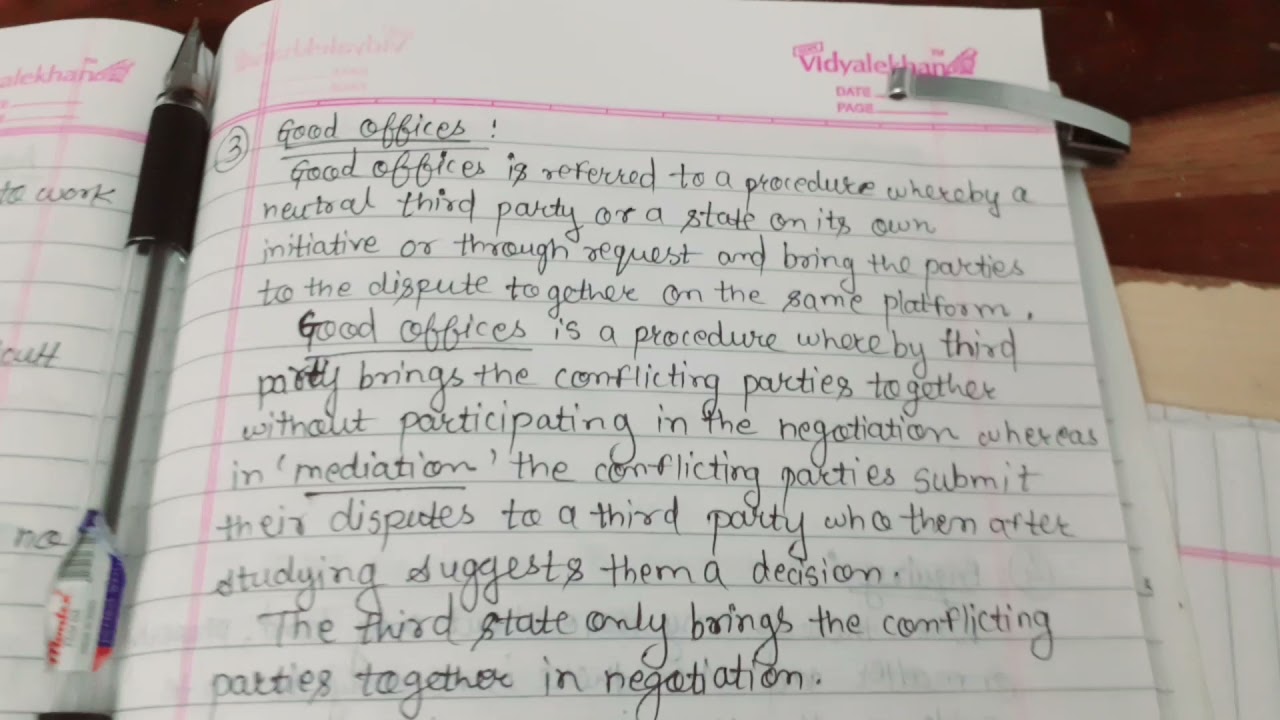 alekhan
to work
cult
no
Vidyalekhan
DATE
PAGE
③ Good offices :
Good offices is referred to a procedure whereby a
neutral third party or a state on its own
initiative or through request and bring the parties
to the dispute together on the same platform.
Good offices is a procedure whereby third
party brings the conflicting parties together
without participating in the negotiation whereas
in 'mediation' the conflicting parties submit
their disputes to a third party who them after
studying suggests them a decision.
The third state only brings the conflicting
parties together in negotiation.